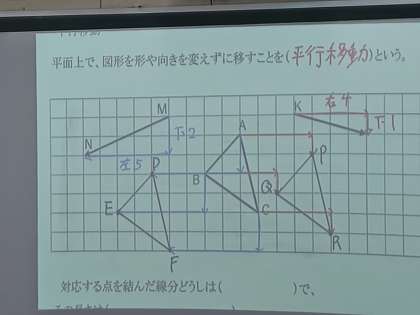 平面上で、図形を形や向きを変えずに移すことを(平行移動)という。
K 右4
M
下1
A
N 下2
P
左5 D
B
Q
E C
R
F
対応する点を結んだ線分どうしは( )で、